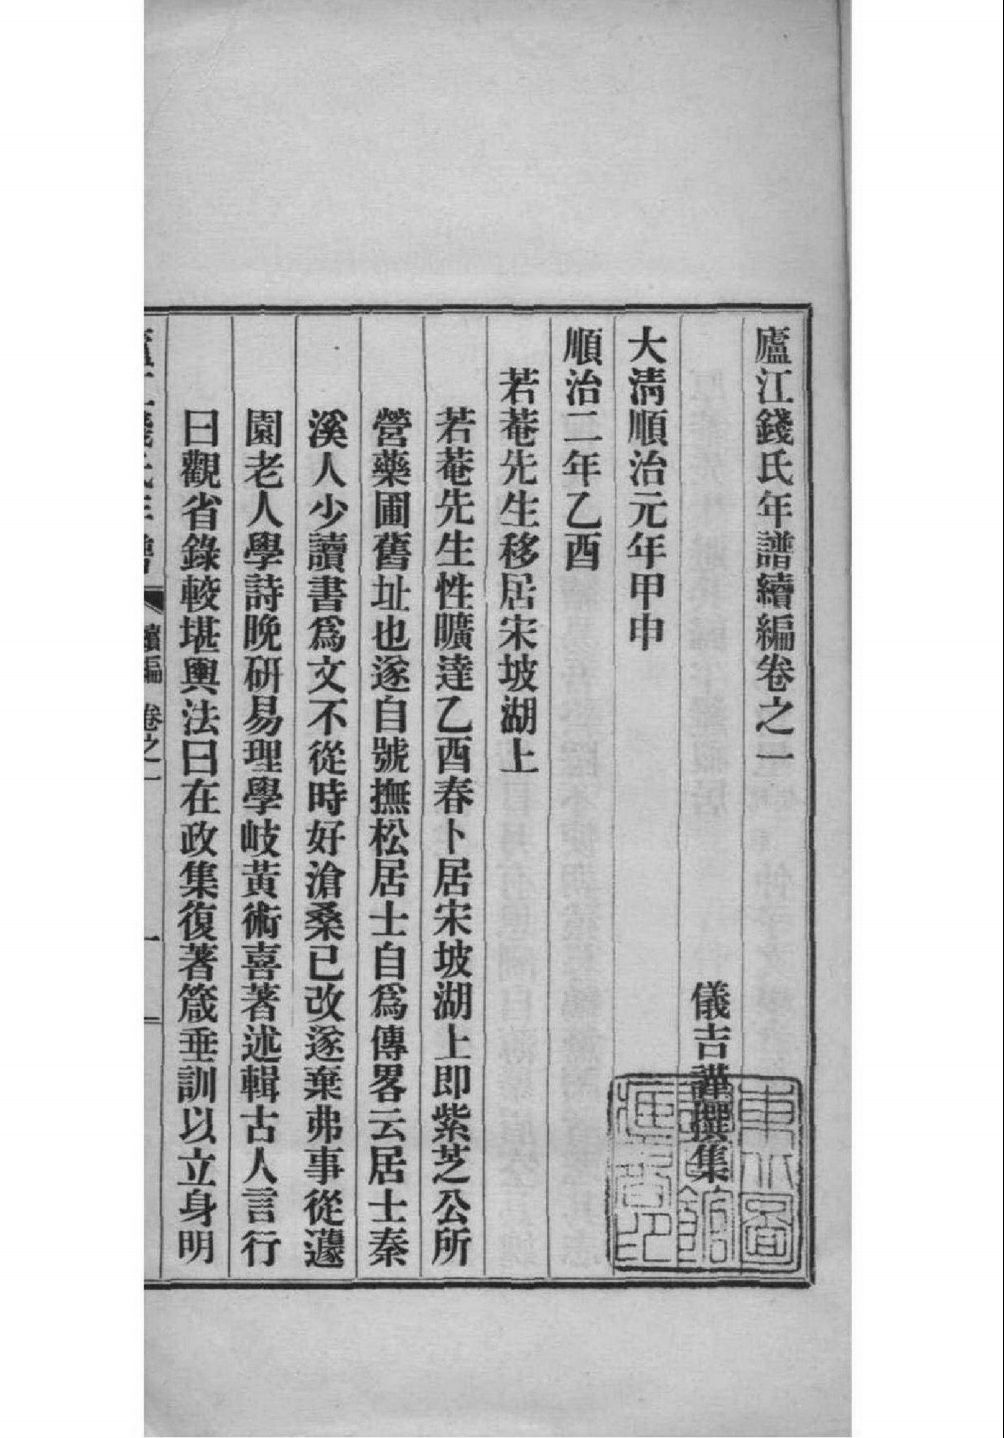 廬江錢氏年譜續編卷之一
儀吉謹撰集
大清順治元年甲申
順治二年乙酉
若菴先生移居宋坡湖上
若菴先生性曠達乙酉春卜居宋坡湖上即紫芝公所
營藥圃舊址也遂自號撫松居士自爲傳畧云居士秦
溪人少讀書爲文不從時好滄桑已改遂棄弗事從蘧
園老人學詩晩研易理學岐黃術喜著述輯古人言行
曰觀省錄較堪輿法曰在政集復著箴垂訓以立身明
廬江錢氏年譜
續編 卷之一
一